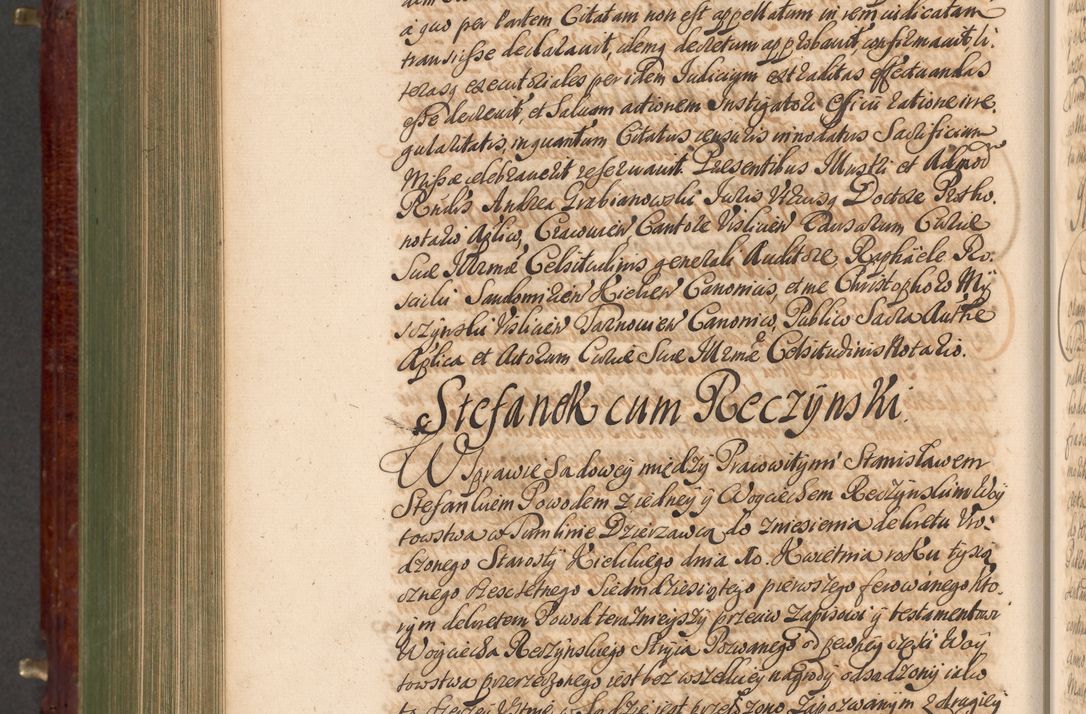 a quo per Partem Citatam non est appellatum in rem iudicatam
transisse declaravit, idemq decretum approbavit confirmavit li:
terasq executoriales per idem Iudicium extraditas effectuandas
esse decrevit, et Salvam actionem Instigatori Officii ratione irre,
gularitatis, in quantum Citatus censuris innodatus Sacrificium
Missæ celebraverit reservavit. Presentibus Illustri et Admod
Rndis Andrea Grabianowski Iuris Utriusq Doctore Protho,
notario Aplico, Cracovien Cantore Vislicien Causarum Curiæ
Suæ Illrmæ Celsitudinis generali Auditore Raphaele Ro:
Sandomirien Kielcen Canonicis, et me Christophoro My
szczÿnski Vislicien Tarnovien Canonico, Publico Sacra Authte
Aplica et Actorum Curiæ Suæ Illrmæ Celsitudinis Notario.
Stefanek cum Reczÿnski.
W Sprawie Sadoweÿ między Pracowitymi Stanisławem
Stefankiem Powodem z iedneÿ ÿ Woyciechem Reczÿnskim Woÿ
towstwa w Dzierzawcą do zniesienia dekretu Uro:
dzonego Starosty Kielckiego dnia 10. Kwietnia roku tysią
cznego szescsetnego Siedmdziesiątego pierwszego ferowanego kto:
rÿm dekretem Powod teraznieÿszÿ przeciw zapisowi ÿ testamentowi
Woyciecha Reczÿnskiego Stryia Pozwanego od pewneÿ częsci Woÿ
towstwa przerzeczonego iest bez wszelkieÿ nagrody odsadzonÿ iako
Zapozwanÿm z drugieÿ